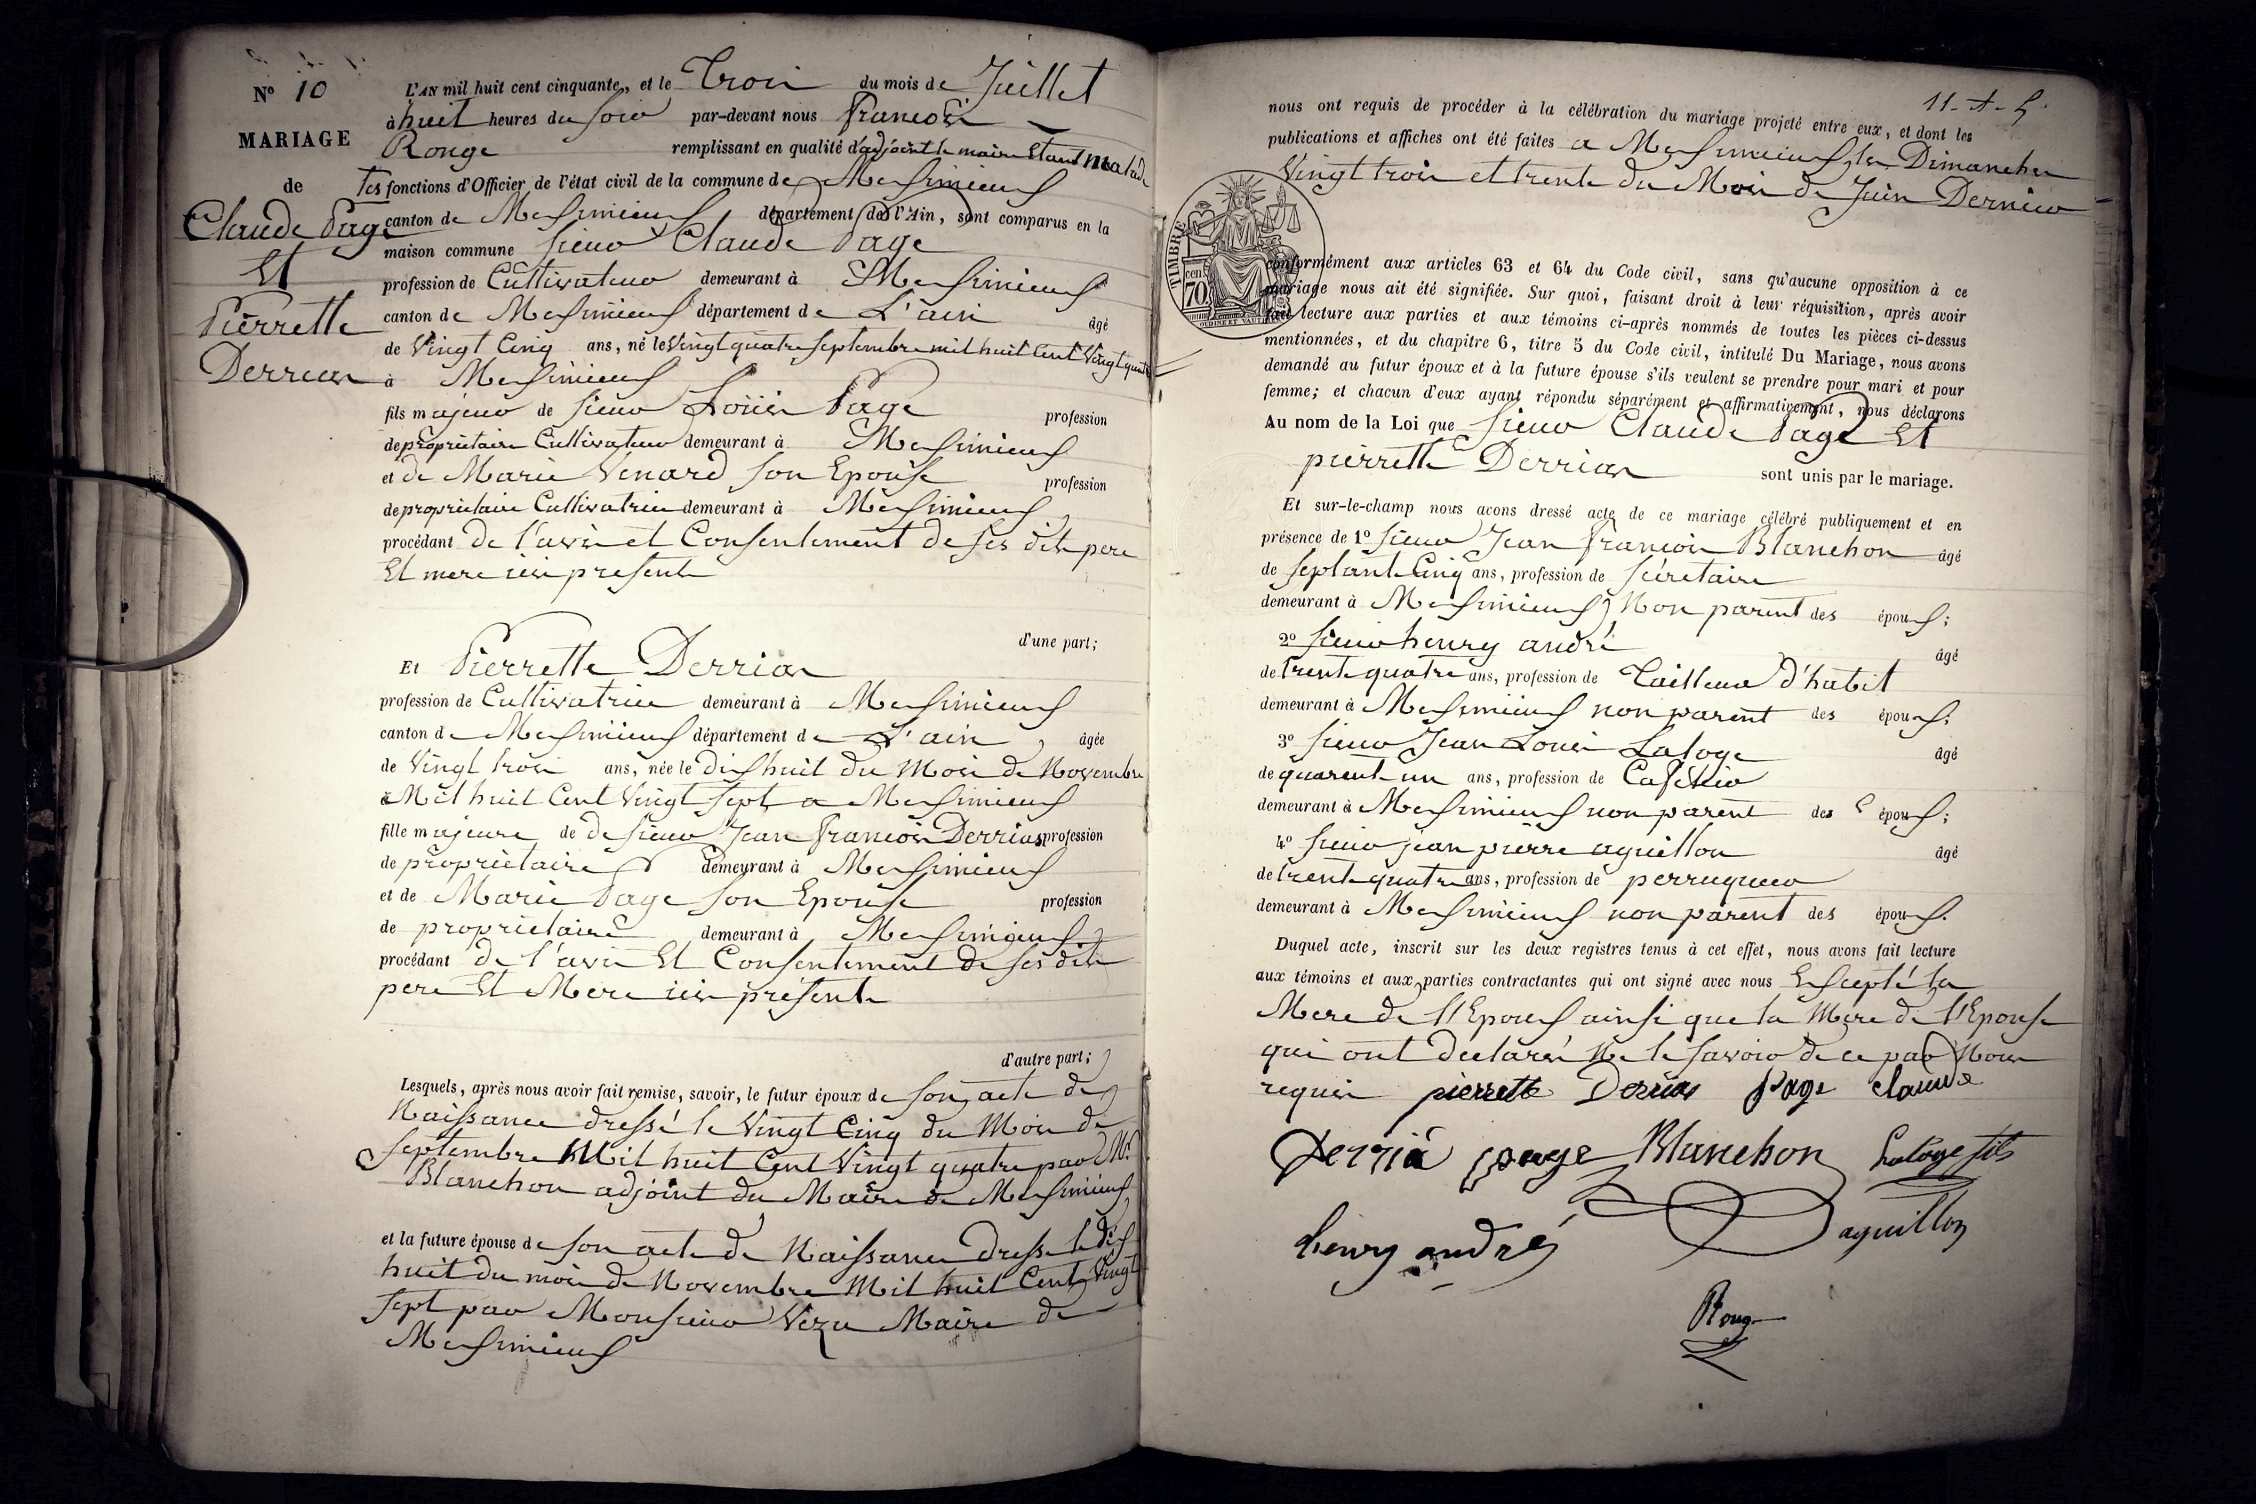 N° 10
MARIAGE
de
Claude Page
Et
Pierrette
Derrias
L'AN mil huit cent cinquante, et le Trois du mois de Juillet
à huit heures du soir par-devant nous françois
Rouge remplissant en qualité d'adjoint le maire Etant malade
les fonctions d'Officier de l'état civil de la commune de Meximieux
canton de Meximieux département de l'Ain, sont comparus en la
maison commune sieur Claude Page
profession de Cultivateur demeurant à Meximieux
canton de Meximieux département de L'ain âgé
de Vingt Cinq ans, né le Vingt quatre septembre mil huit Cent Vingt quatre
à Meximieux
fils majeur de sieur Loüis Page profession
de propriétaire Cultivateur demeurant à Meximieux
et de Marie Venard son Epouse profession
de propriétaire Cultivatrice demeurant à Meximieux
procédant de l'avis et Consentement de ses dits pere
Et mere ici présents
d'une part;
Et Pierrette Derrias
profession de Cultivatrice demeurant à Meximieux
canton de Meximieux département de L'ain, âgée
de Vingt trois ans, née le dix huit du Mois de Novembre
Mil huit Cent Vingt sept a Meximieux
fille majeure de de sieur Jean françois Derrias profession
de propriétaire demeurant à Meximieux
et de Marie Page son Epouse profession
de propriétaire demeurant à Meximieux
procédant de l'avis Et Consentement de ses dits
pere Et Mere ici présents
d'autre part;
Lesquels, après nous avoir fait remise, savoir, le futur époux de son acte de
Naissance dressé le Vingt Cinq du Mois de
septembre Mil huit Cent Vingt quatre par Mr
Blanchon adjoint du Maire de Meximieux
et la future épouse de son acte de Naissance dressé le dix
huit du mois de Novembre Mil huit Cent Vingt
sept par Monsieur Vezu Maire de
Meximieux
nous ont requis de procéder à la célébration du mariage projeté entre eux, et dont les
publications et affiches ont été faites a Meximieux les Dimanches
Vingt trois et trente du Mois de Juin Dernier
TIMBRE
cen 70
OUDINET VAUTHIER
conformément aux articles 63 et 64 du Code civil, sans qu'aucune opposition à ce
mariage nous ait été signifiée. Sur quoi, faisant droit à leur réquisition, après avoir
fait lecture aux parties et aux témoins ci-après nommés de toutes les pièces ci-dessus
mentionnées, et du chapitre 6, titre 5 du Code civil, intitulé Du Mariage, nous avons
demandé au futur époux et à la future épouse s'ils veulent se prendre pour mari et pour
femme; et chacun d'eux ayant répondu séparément et affirmativement, nous déclarons
Au nom de la Loi que sieur Claude Page Et
pierrette Derrias sont unis par le mariage.
Et sur-le-champ nous avons dressé acte de ce mariage célébré publiquement et en
présence de 1° sieur Jean françois Blanchon âgé
de septante Cinq ans, profession de sécretaire
demeurant à Meximieux Non parent des époux;
2° sieur henry andré âgé
de trente quatre ans, profession de Tailleur d'habit
demeurant à Meximieux non parent des époux;
3° sieur Jean Louis Laloge âgé
de quarente un ans, profession de Caffetier
demeurant à Meximieux non parent des époux;
4° sieur jean pierre aguillon âgé
de trente quatre ans, profession de perruquier
demeurant à Meximieux non parent des époux.
Duquel acte, inscrit sur les deux registres tenus à cet effet, nous avons fait lecture
aux témoins et aux parties contractantes qui ont signé avec nous Excepté la
Mere de l'Epoux ainsi que la Mere de l'Epouse
qui ont déclaré Ne le savoir de ce par Nous
requis pierrette Derrias Page claude
Derria page Blanchon Laloge fils
henry andré aguillon
Rouge